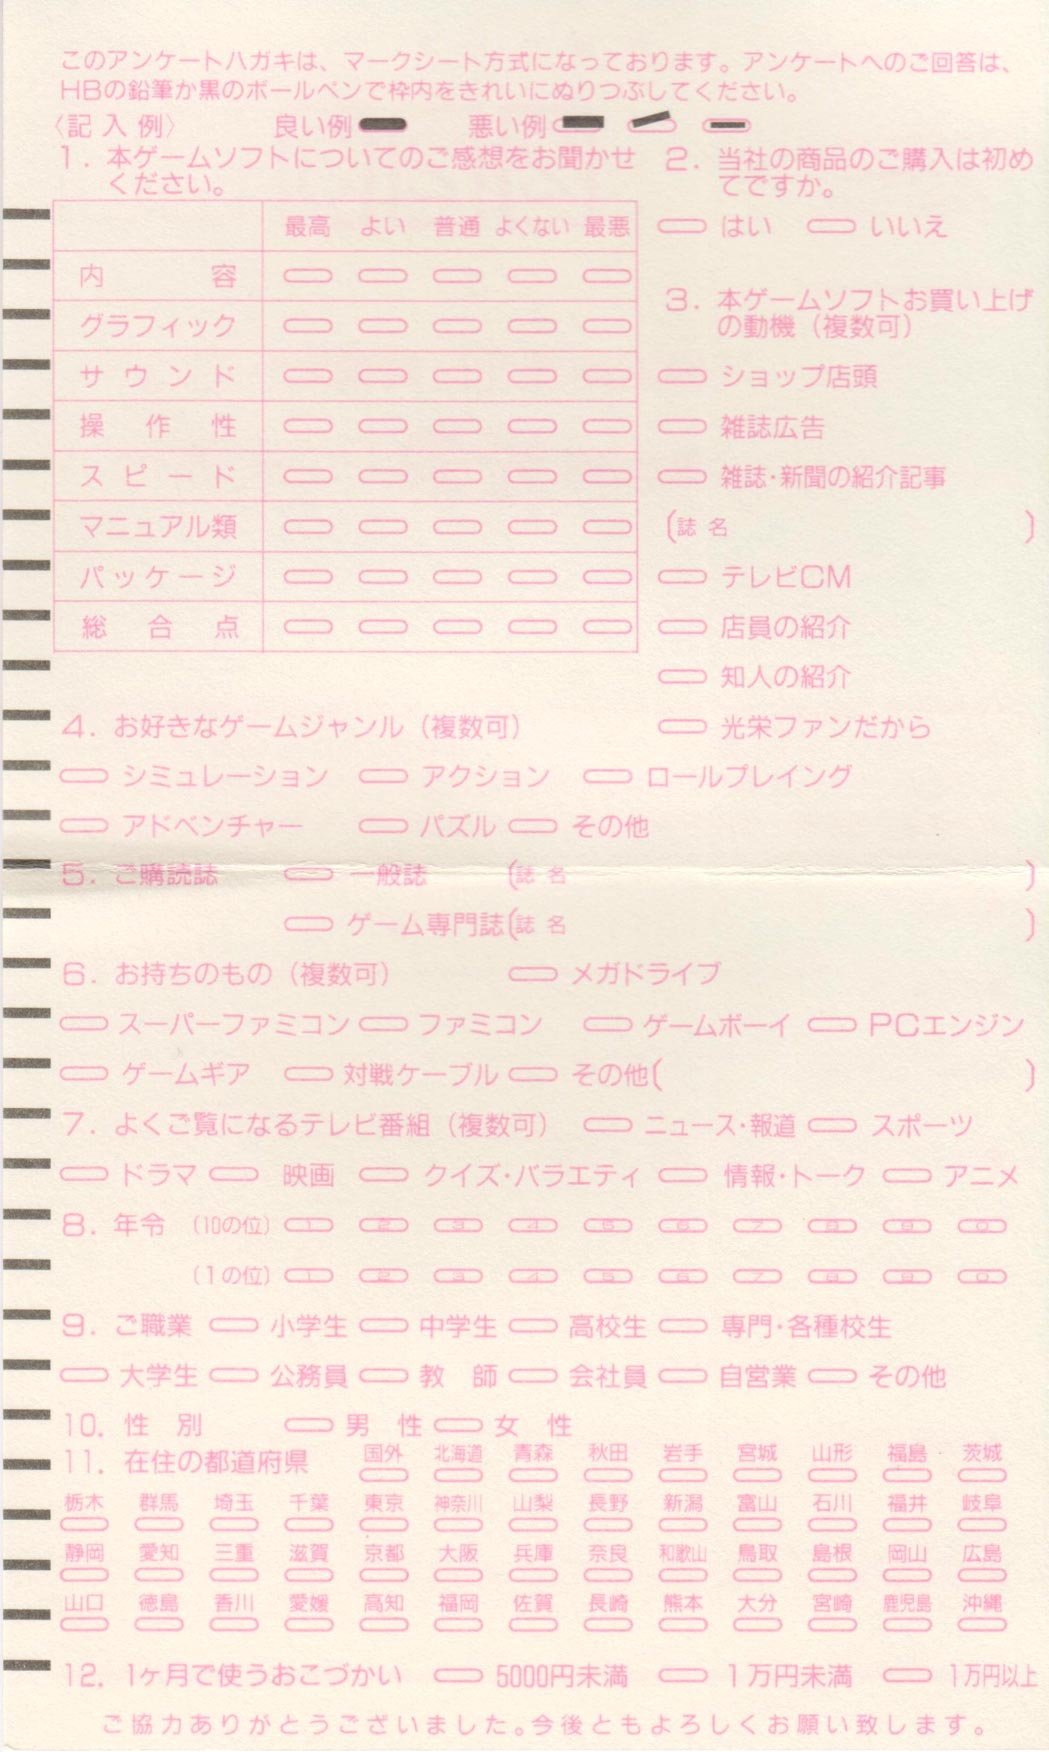 このアンケートハガキは、マークシート方式になっております。アンケートへのご回答は、
HBの鉛筆か黒のボールペンで枠内をきれいにぬりつぶしてください。
〈記入例〉 良い例 悪い例
1. 本ゲームソフトについてのご感想をお聞かせ
ください。
最高 よい 普通 よくない 最悪
内容
グラフィック
サウンド
操作性
スピード
マニュアル類
パッケージ
総合点
2. 当社の商品のご購入は初め
てですか。
はい いいえ
3. 本ゲームソフトお買い上げ
の動機（複数可）
ショップ店頭
雑誌広告
雑誌・新聞の紹介記事
(誌名 )
テレビCM
店員の紹介
知人の紹介
光栄ファンだから
4. お好きなゲームジャンル（複数可）
シミュレーション アクション ロールプレイング
アドベンチャー パズル その他
5. ご購読誌 一般誌 (誌名 )
ゲーム専門誌(誌名 )
6. お持ちのもの（複数可） メガドライブ
スーパーファミコン ファミコン ゲームボーイ PCエンジン
ゲームギア 対戦ケーブル その他( )
7. よくご覧になるテレビ番組（複数可） ニュース・報道 スポーツ
ドラマ 映画 クイズ・バラエティ 情報・トーク アニメ
8. 年令 (10の位) 1 2 3 4 5 6 7 8 9 0
(1の位) 1 2 3 4 5 6 7 8 9 0
9. ご職業 小学生 中学生 高校生 専門・各種校生
大学生 公務員 教師 会社員 自営業 その他
10. 性別 男性 女性
11. 在住の都道府県 国外 北海道 青森 秋田 岩手 宮城 山形 福島 茨城
栃木 群馬 埼玉 千葉 東京 神奈川 山梨 長野 新潟 富山 石川 福井 岐阜
静岡 愛知 三重 滋賀 京都 大阪 兵庫 奈良 和歌山 鳥取 島根 岡山 広島
山口 徳島 香川 愛媛 高知 福岡 佐賀 長崎 熊本 大分 宮崎 鹿児島 沖縄
12. 1ヶ月で使うおこづかい 5000円未満 1万円未満 1万円以上
ご協力ありがとうございました。今後ともよろしくお願い致します。